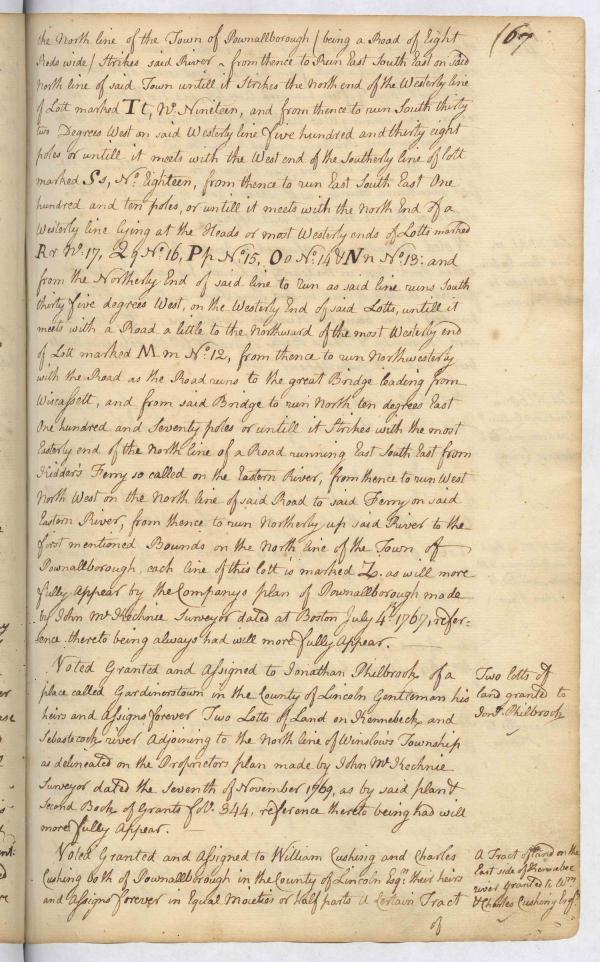 167
the North line of the Town of Pownallborough (being a Road of Eight
Rods wide) Strikes said River ~ from thence to Run East South East on said
North line of said Town untill it Strikes the North end of the Westerly line
of Lott marked Tt, No. Nineteen, and from thence to run South thirty
two Degrees West on said Westerly line five hundred and thirty eight
poles or untill it meets with the West end of the Southerly line of lott
marked Ss, No. Eighteen, from thence to run East South East One
hundred and ten poles, or untill it meets with the North End of a
Westerly line lying at the Heads or most Westerly ends of Lotts marked
Rr No. 17, Qq No. 16, Pp No. 15, Oo No. 14 & Nn No. 13: and
from the Northerly End of said line to run as said line runs South
thirty five degrees West, on the Westerly End of said Lotts, untill it
meets with a Road a little to the Northward of the most Westerly end
of Lott marked Mm No. 12, from thence to run Northwesterly
with the Road as the Road runs to the great Bridge leading from
Wiscassett, and from said Bridge to run North ten degrees East
One hundred and Seventy poles or untill it Strikes with the most
Easterly end of the North line of a Road running East South East from
Kidder's Ferry so called on the Eastern River, from thence to run West
North West on the North line of said Road to said Ferry on said
Eastern River, from thence to run Northerly up said River to the
first mentioned Bounds on the North line of the Town of
Pownallborough, each line of this lott is marked Z, as will more
fully Appear by the Companys plan of Pownallborough made
by John McKechnie Surveyor dated at Boston July 4th 1767, refer=
=ence thereto being always had will more fully Appear.
Voted Granted and Assigned to Jonathan Philbrook of a
place called Gardinerstown in the County of Lincoln Gentleman his
heirs and Assigns forever Two Lotts of Land on Kennebeck and
Sebastecook river Adjoining to the North line of Winslow's Township
as delineated on the Proprietors plan made by John McKechnie
Surveyor dated the Seventh of November 1769, as by said plan &
Second Book of Grants fol. 344, reference thereto being had will
more fully Appear.
Two lotts of
land granted to
Jona. Philbrook
Voted Granted and Assigned to William Cushing and Charles
Cushing both of Pownallborough in the County of Lincoln Esqrs. their heirs
and Assigns forever in Equal Moieties or Half parts A Certain Tract
of
A Tract of land on the
East side of Kennebec
river granted to Wm.
& Charles Cushing Esqrs.